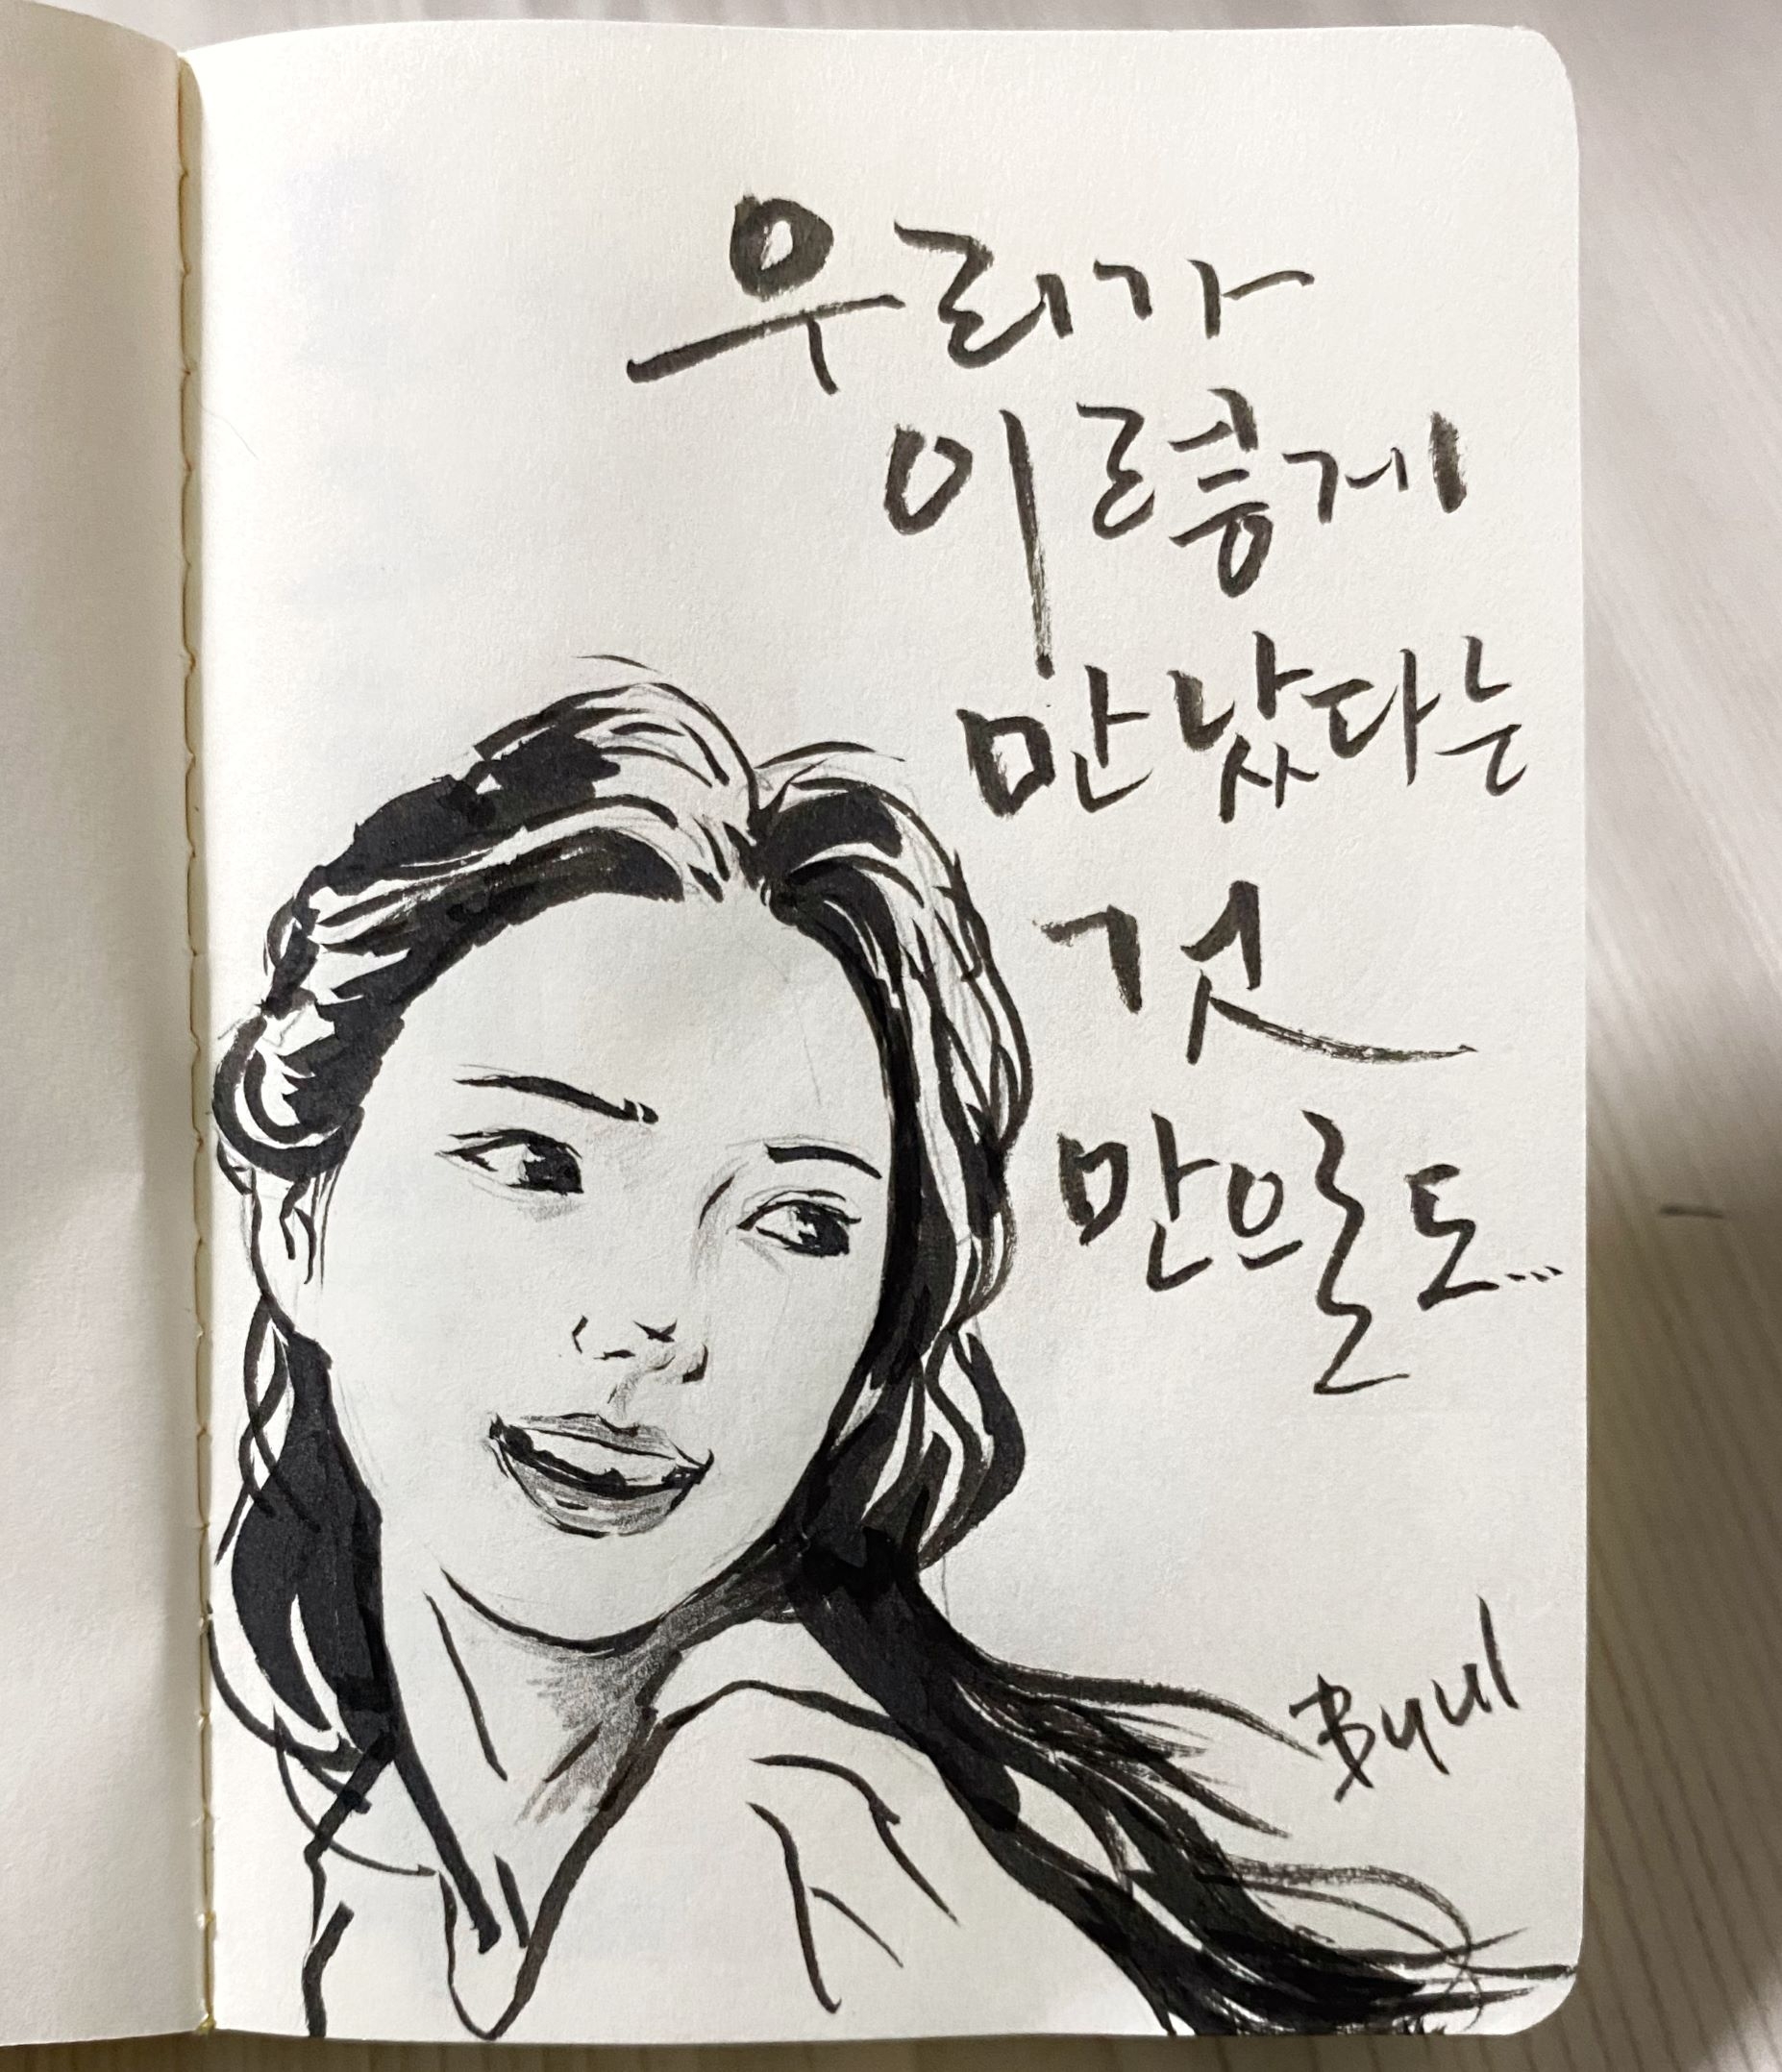 우리가
이렇게
만났다는
것
만으로도...
Byul